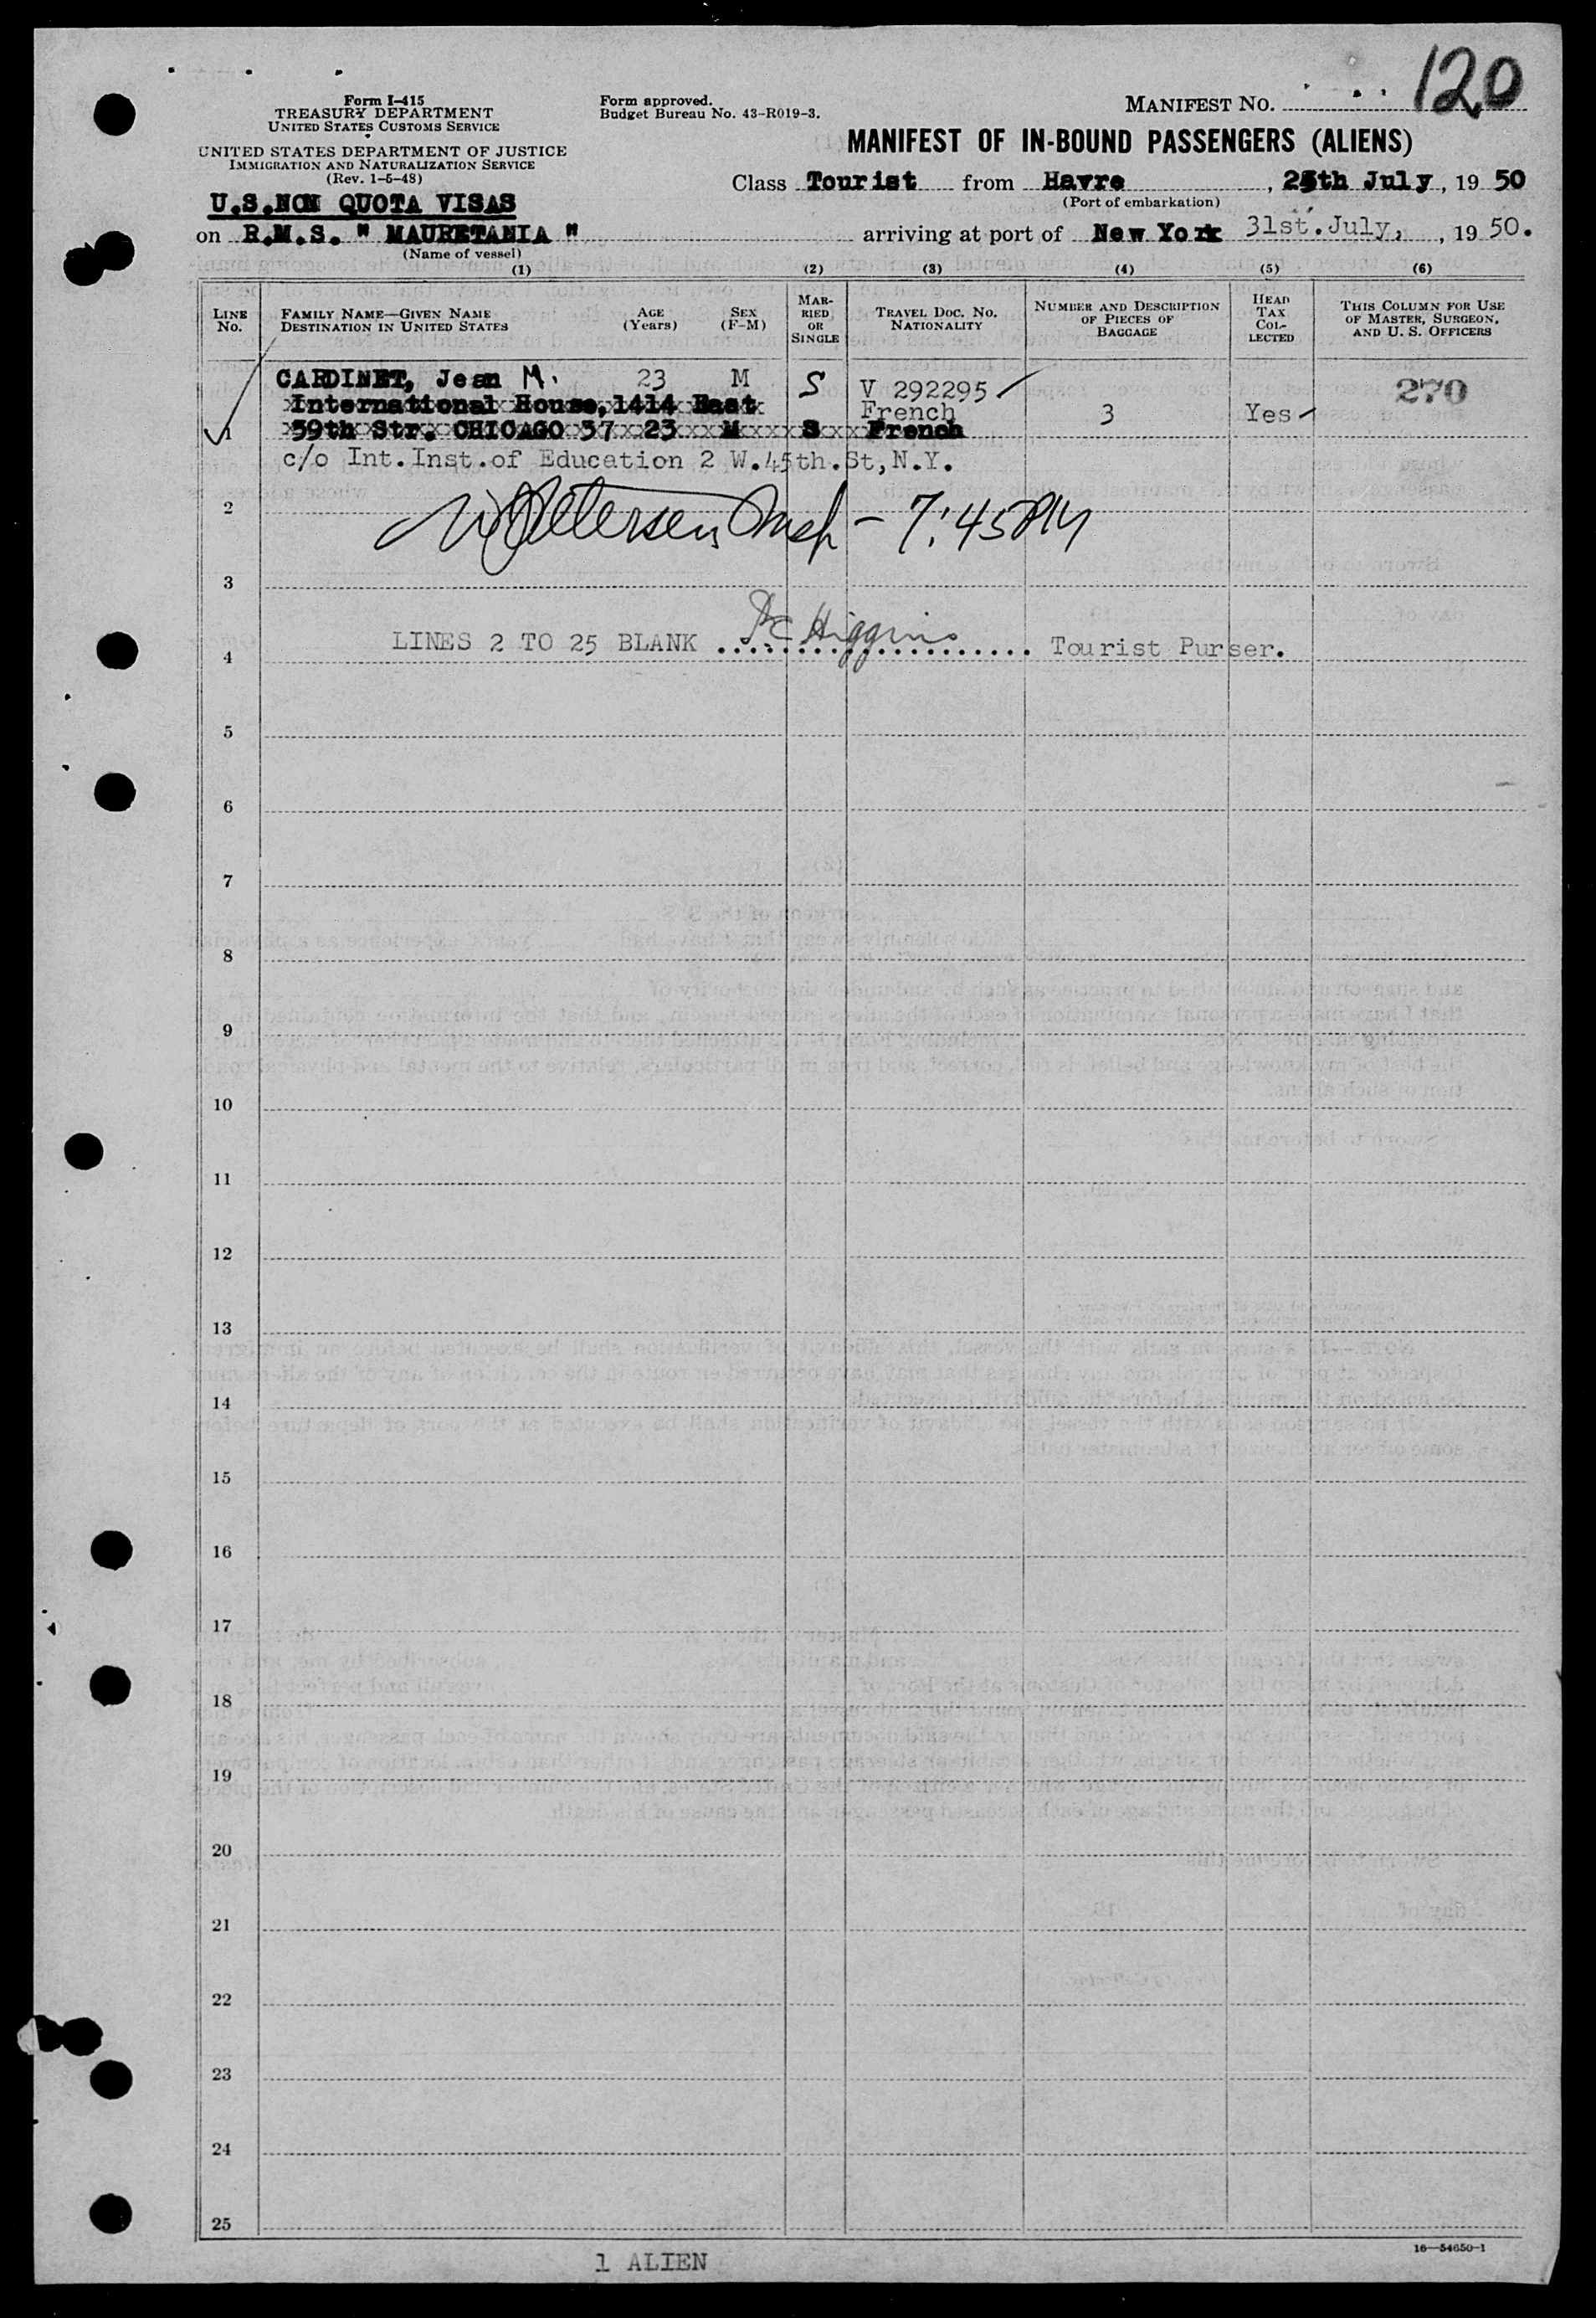 120
Form I-415
TREASURY DEPARTMENT
UNITED STATES CUSTOMS SERVICE
UNITED STATES DEPARTMENT OF JUSTICE
IMMIGRATION AND NATURALIZATION SERVICE
(Rev. 1-5-48)
Form approved.
Budget Bureau No. 43-R019-3.
MANIFEST NO.
MANIFEST OF IN-BOUND PASSENGERS (ALIENS)
Class Tourist from Havre, 25th July, 19 50
(Port of embarkation)
U.S.NON QUOTA VISAS
on R.M.S. " MAURETANIA " arriving at port of New York 31st.July, , 19 50.
(Name of vessel)
(1) (2) (3) (4) (5) (6)
LINE NO.
FAMILY NAME—GIVEN NAME
DESTINATION IN UNITED STATES
AGE (Years)
SEX (F-M)
MARRIED OR SINGLE
TRAVEL DOC. NO. NATIONALITY
NUMBER AND DESCRIPTION OF PIECES OF BAGGAGE
HEAD TAX COLLECTED
THIS COLUMN FOR USE OF MASTER, SURGEON, AND U. S. OFFICERS
CARDINET, Jean M. 23 M S V 292295 270
International House, 1414 East French 3 Yes
1 59th Str. CHICAGO 37 23 M S French
c/o Int.Inst.of Education 2 W.45th.St,N.Y.
2 Petersen Insp - 7:45 PM
3
4 LINES 2 TO 25 BLANK Higgins Tourist Purser.
5
6
7
8
9
10
11
12
13
14
15
16
17
18
19
20
21
22
23
24
25
16—54650-1
1 ALIEN